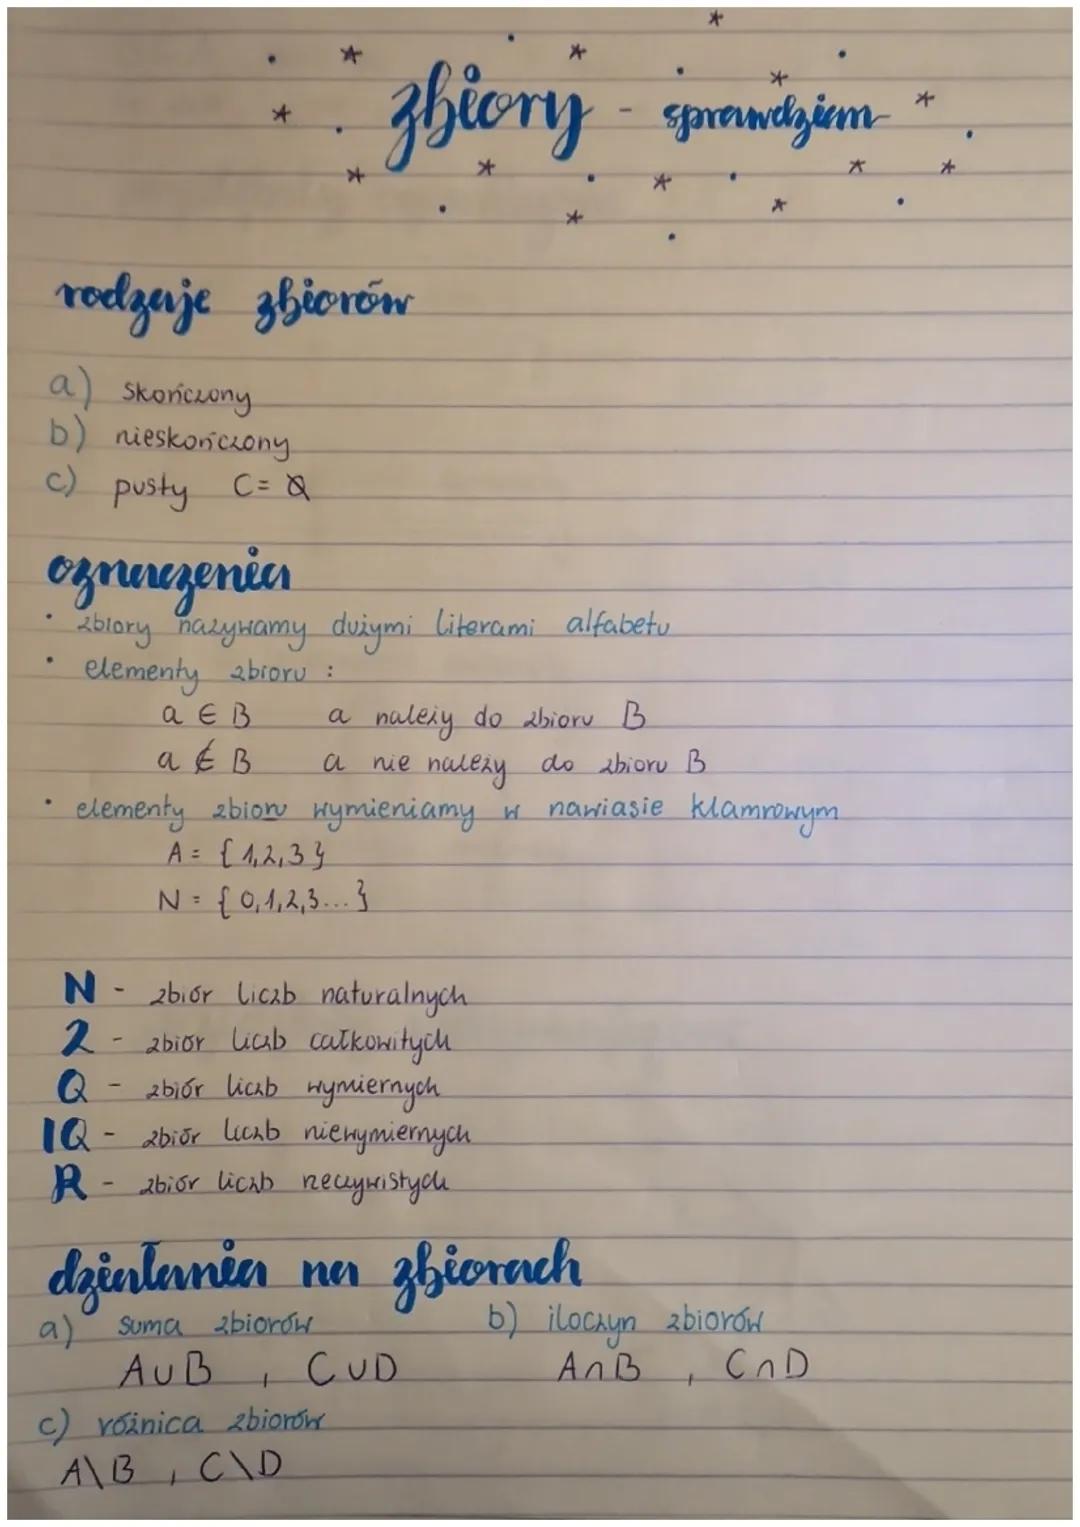 zbiory - sprawdzian
rodzaje zbiorów
a) skończony
b) nieskończony
c) pusty C = Ø
oznaczenia
• zbiory nazywamy dużymi literami alfabetu
• elementy zbioru :
a ∈ B a należy do zbioru B
a ∉ B a nie należy do zbioru B
• elementy zbioru wymieniamy w nawiasie klamrowym
A = { 1,2,3 }
N = { 0,1,2,3... }
N - zbiór liczb naturalnych
Z - zbiór liczb całkowitych
Q - zbiór liczb wymiernych
IQ - zbiór liczb niewymiernych
R - zbiór liczb rzeczywistych
działania na zbiorach
a) suma zbiorów b) iloczyn zbiorów
A∪B , C∪D A∩B , C∩D
c) różnica zbiorów
A\B , C\D